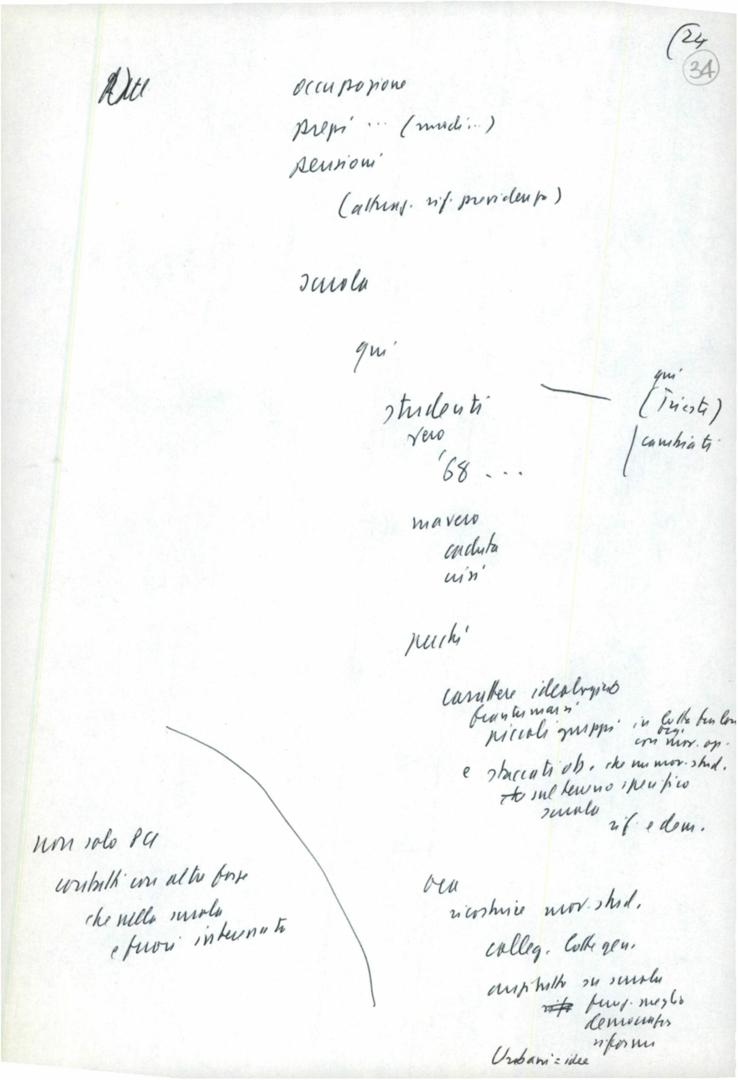 (24
34
occupazione
prezzi ... (medi...)
pensioni
(attuaz. rif. previdenza)
scuola
qui
studenti
vero
'68 ...
qui
(Trieste)
cambiati
ma vero
caduta
crisi
perché
carattere ideologico
frantumarsi
piccoli gruppi in lotta tra loro
oggi
con mov. op.
e staccati ob. che un mov. stud.
sul terreno specifico
scuola
rif. e dem.
non solo PCI
contatti con altre forze
che nella scuola
e fuori interessate
ora
ricostruire mov. stud.
colleg. lotte gen.
soprattutto su scuola
funz. meglio
democratiz
riforma
Urbani = idee